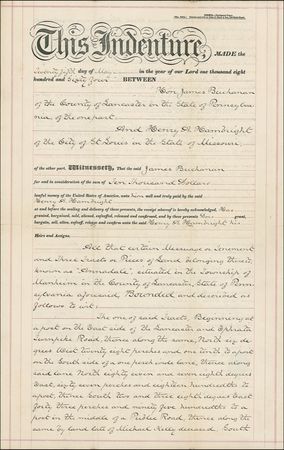 This Indenture, MADE the
Twenty fifth day of May in the year of our Lord one thousand eight
hundred and Sixty Four BETWEEN
Hon. James Buchanan
of the County of Lancaster in the State of Pennsylva-
nia, of the one part:
And Henry A. Hambright
of the City of St Louis in the State of Missouri,
of the other part. Witnesseth, That the said James Buchanan
for and in consideration of the sum of Ten Thousand Dollars
lawful money of the United States of America, unto him well and truly paid by the said
Henry A. Hambright
at and before the sealing and delivery of these presents, the receipt whereof is hereby acknowledged, Has
granted, bargained, sold, aliened, enfeoffed, released and confirmed, and by these presents Does grant,
bargain, sell, alien, enfeoff, release and confirm unto the said Henry A. Hambright his
Heirs and Assigns,
All that certain Messuage or Tenement
and Three Tracts or Pieces of Land belonging thereto,
known as situated in the Township of
Manheim in the County of Lancaster, State of Penn-
sylvania aforesaid, Bounded and described as
follows to wit:
The one of said Tracts, Beginning at
a post on the East side of the Lancaster and Ephrata
Turnpike Road, thence along the same, North six de-
grees West twenty eight perches and one tenth to a post
on the South side of a one perch wide lane, thence along
said lane North eighty seven and seven eighth degrees
East, sixty seven perches and eighteen hundredths to
a post, thence South two and three eighth degrees East
forty three perches and ninety five hundredths to a
post in the middle of a Public Road, thence along the
same by land late of Michael Kelly deceased, South